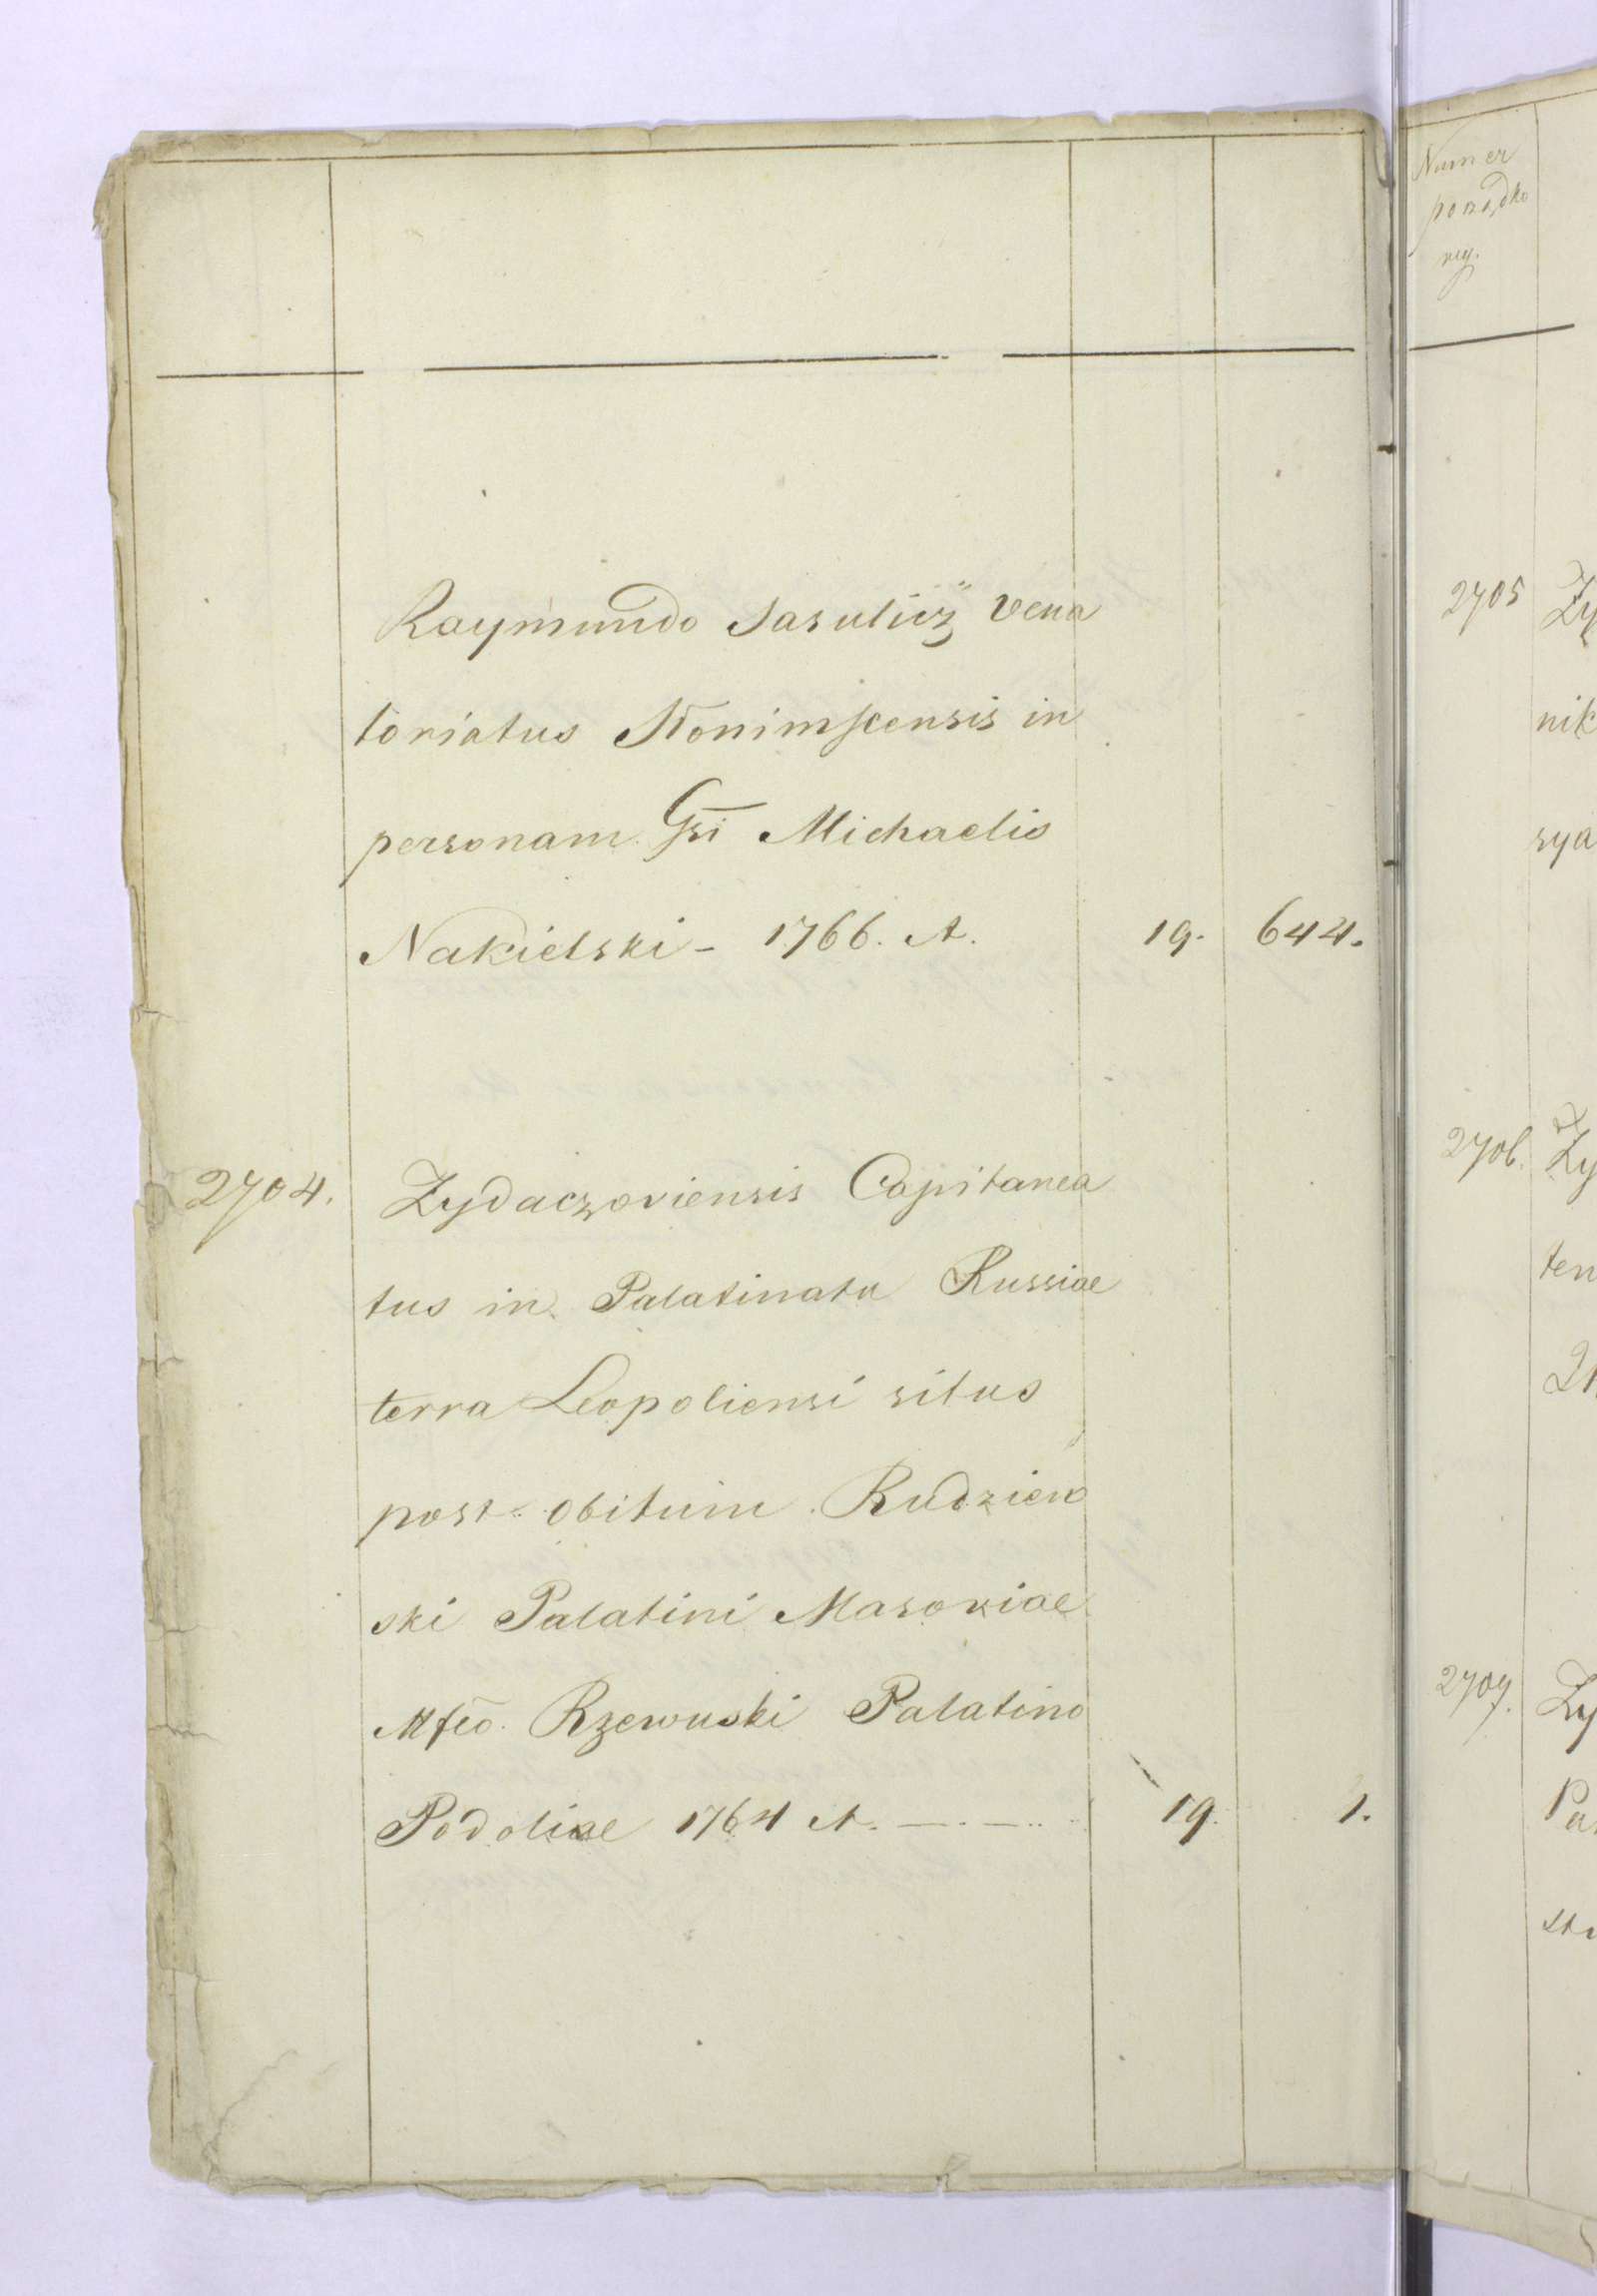 Raymundo Sasulicz Vena
toriatus Słonimscensis in
personam Gsi Michaelis
Nakielski - 1766. A. 19. 644.
2704. Zydaczoviensis Capitanea
tus in Palatinatu Russiae
terra Leopoliensi situs
post obitum Rudzien
ski Palatini Masoviae
Mfco. Rzewuski Palatino
Podoliae 1764 A. 19. 1.
Numer
porządko
wy.
2705 Zy
nik
sya
2706. Zy
ten
2707. Zy
Pa